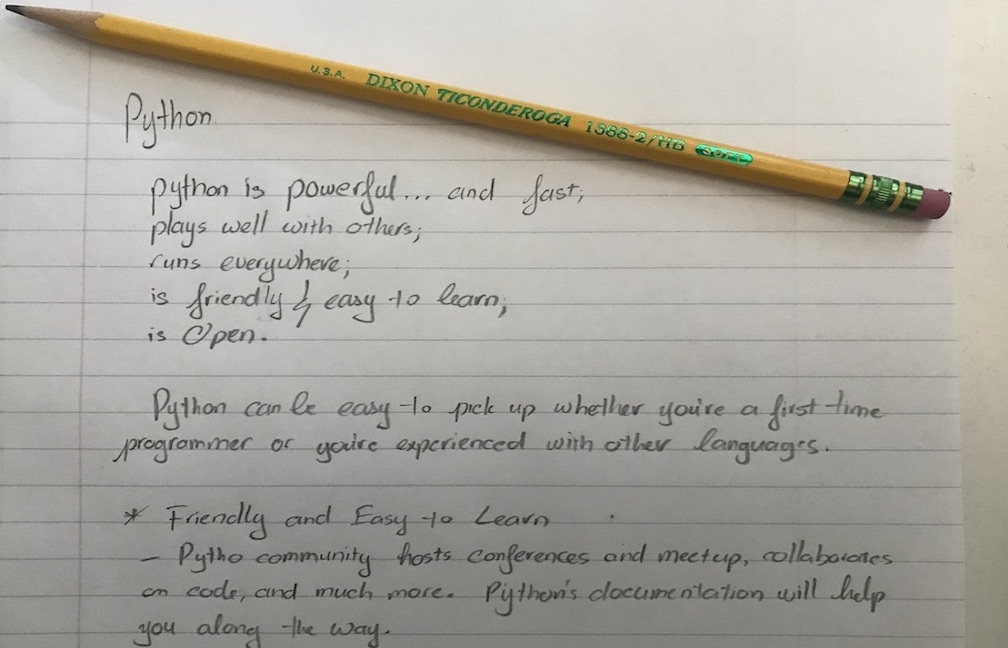 U.S.A. DIXON TICONDEROGA 1388-2/HB SOFT
Python
python is powerful... and fast;
plays well with others;
runs everywhere;
is friendly & easy to learn;
is Open.
Python can be easy to pick up whether you're a first time
programmer or you're experienced with other languages.
* Friendly and Easy to Learn
– Pytho community hosts conferences and meetup, collaborates
on code, and much more. Python's documentation will help
you along the way.